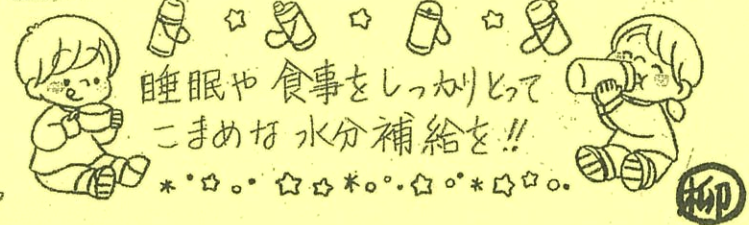 睡眠や食事をしっかりとって
こまめな水分補給を!!
柳